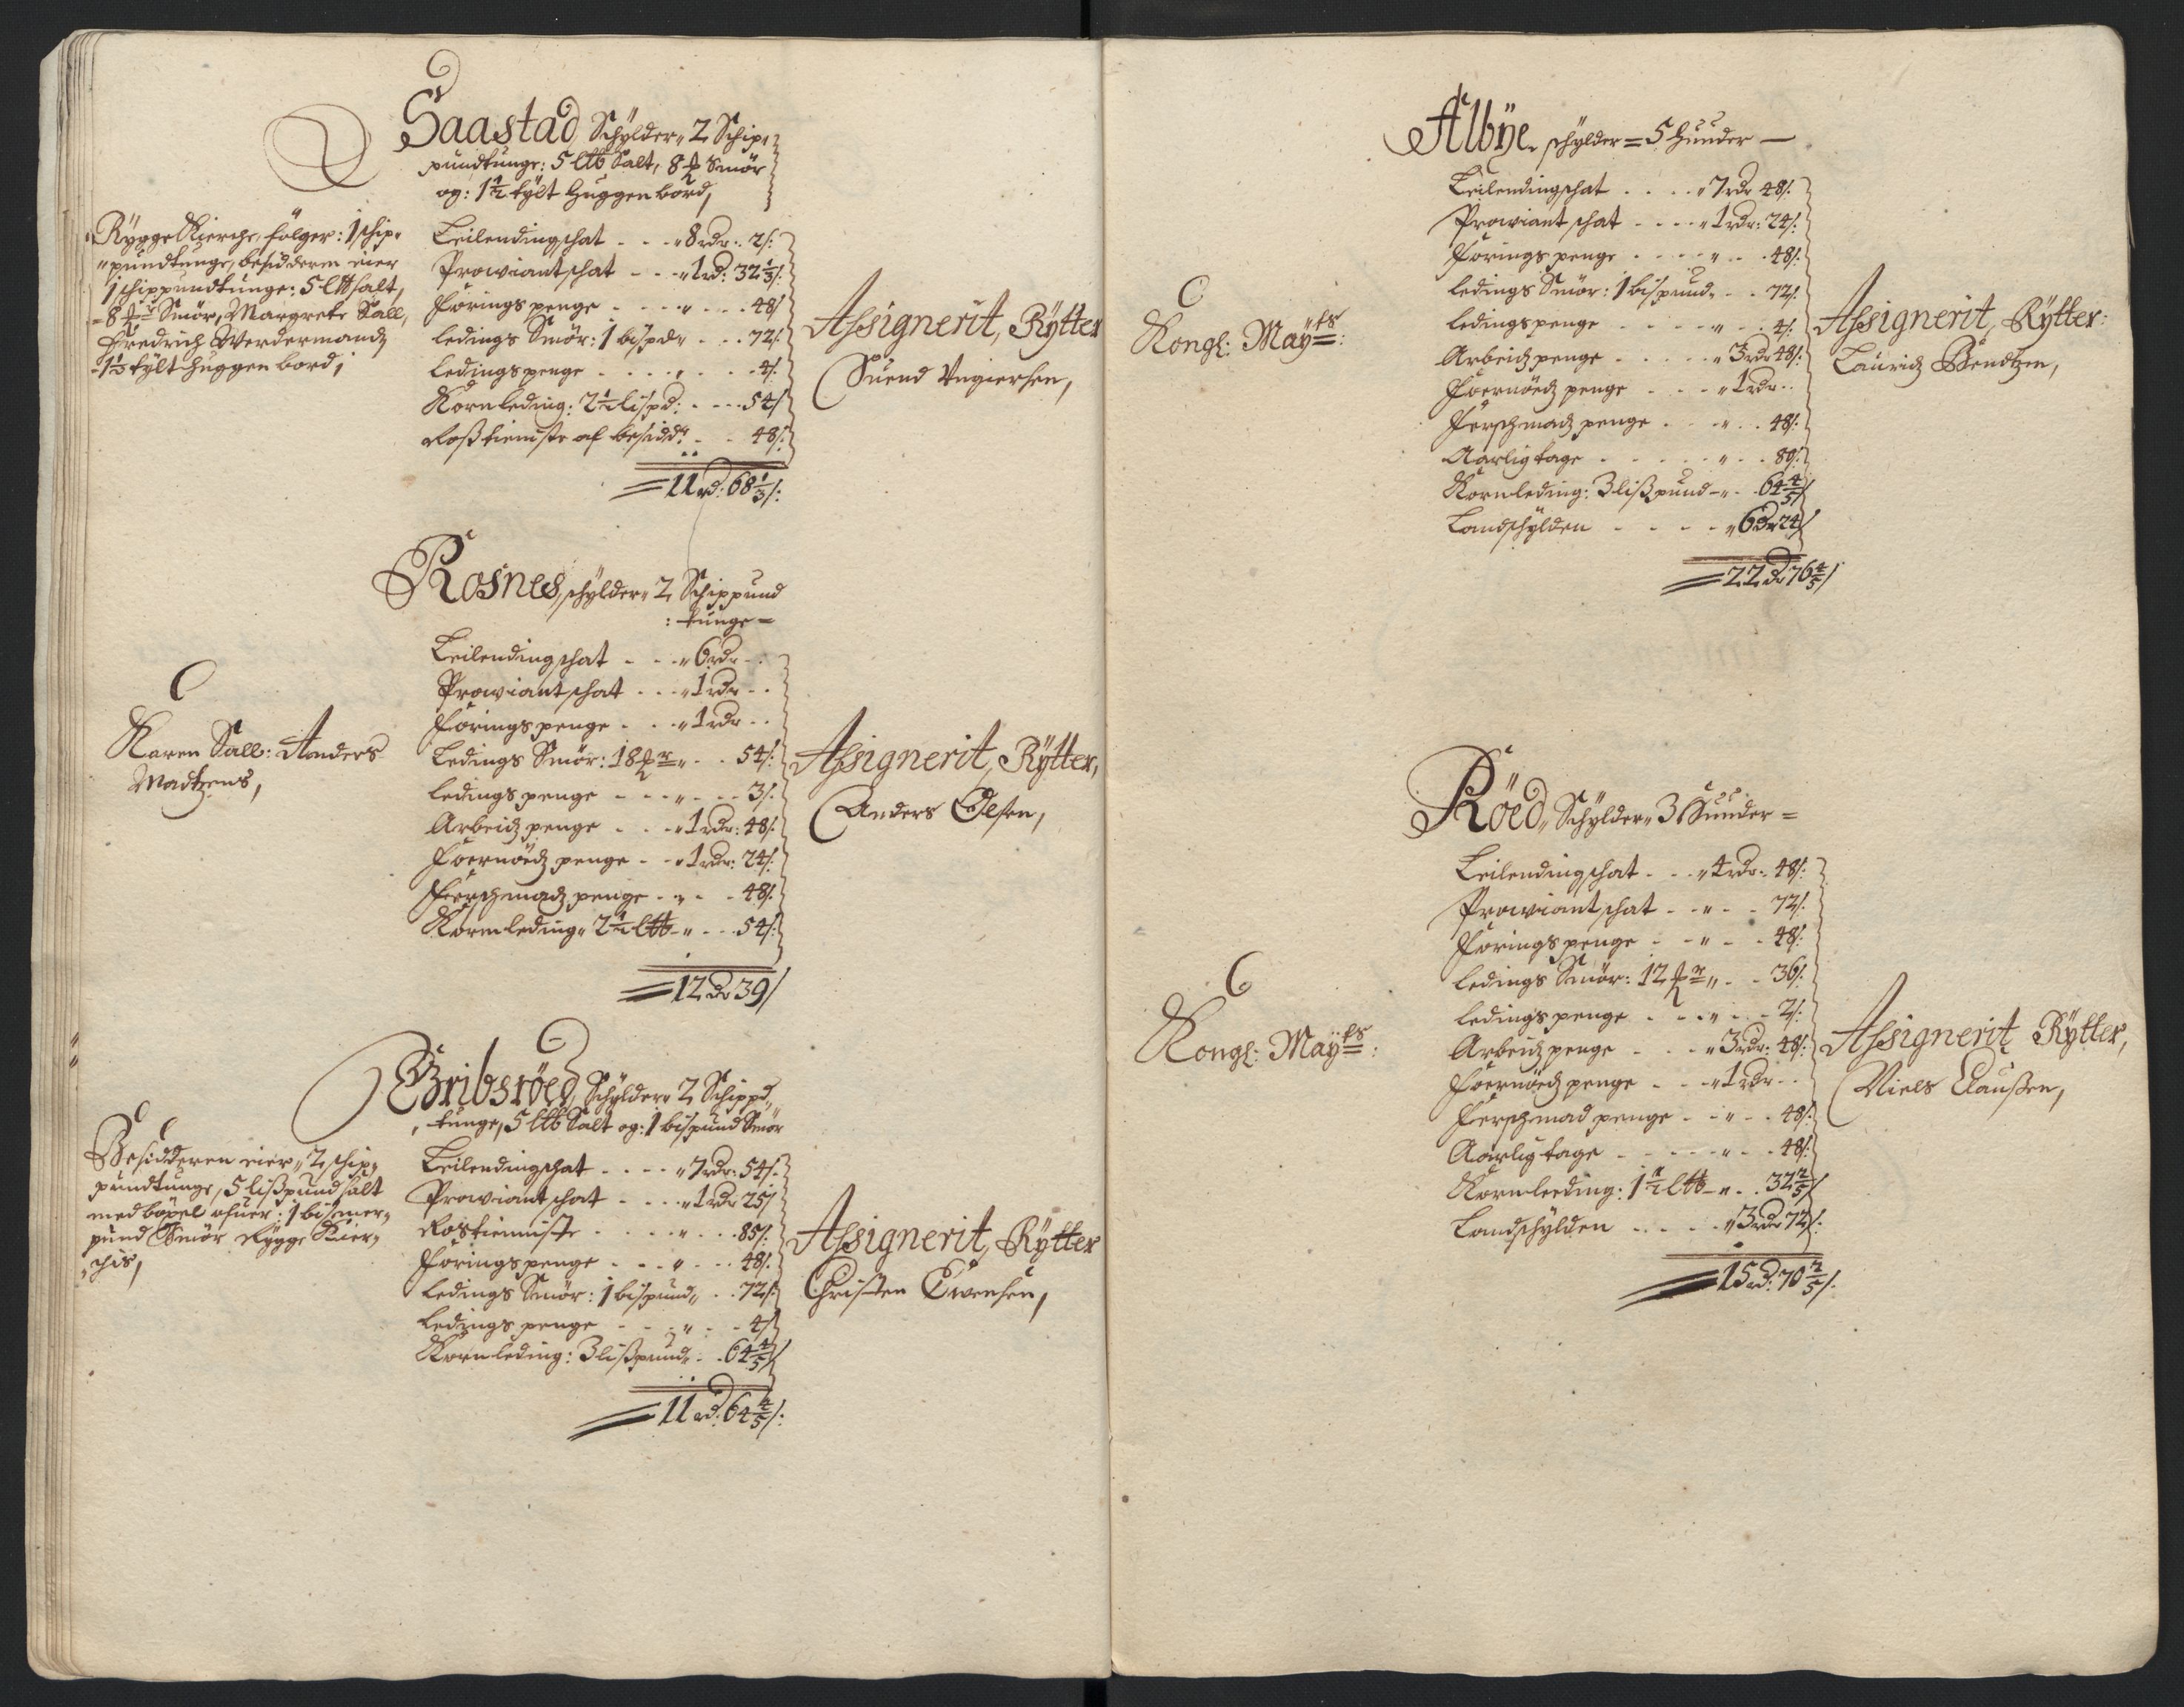 Saastad Schÿlder„ 2 Schip„
pundtunge: 5 ltb Salt, 8 Smör
og: 1½ tÿlt Huggenbord,
Rÿgge Kierche følger: 1 schip„
„pundtunge, besidderen eier
1 schippundtunge: 5 ltb salt,
„8 Smör, Margrete Sall,
Fredrich Werdermandz
1½ tÿlt Huggen bord,
Leilendingschat . . . „ 8 rdr: 2 s:
Prowiantschat . . . „ 1 rd: 32⅓ s:
Föringspenge . . . „ . . . 48 s
Ledings Smör: 1 bispd„ . . . 72 s
Ledingspenge . . . . . . . 4 s:
Kornleding: 2½ lispd: . . . 54 s
Rostieniste af besidd: . . 48 s:
11 rd: 68⅓ s:
Assignerit, Rÿtter
Suend Ungiersen,
Rosnes, schÿlder„ 2 Schippund
: tunge =
Karen Sall: Anders
Madtzens,
Leilendingschat . . . „ 6 rdr . .
Prowiantschat . . . „ 1 rdr . .
Föringspenge . . . „ 1 rdr . .
Ledings Smör: 18 „ . . 54 s:
Ledingspenge . . . „ . . . 3 s:
Arbeidz penge . . . „ 1 rdr: 48 s:
Foernödz penge . . „ 1 rdr: 24 s:
Ferschmadz penge . „ . . 48 s:
Kornleding„ 2½ ltb „ . . . 54 s:
12 dr 39 s
Assignerit, Rÿtter,
Anders Olsen,
Gribsröed, Schÿlder„ 2 Schippd„
, tunge, 5 ltb Salt og: 1 bispund Smör
Besidderen eier„ 2 schip„
pundtunge, 5 lispund salt
med böxel ofuer: 1 bismer„
pund Smör Rÿgge Kier„
„chis,
Leilendingschat . . . . „ 7 rdr: 54 s:
Prowiantschat . . . . „ 1 rdr 25 s
Rostieniste . . . . „ . . . 85 s:
Föringspenge . . . „ . . . 48 s:
Ledings Smör: 1 bispund„ . . 72 s
Ledings penge . . . „ . . . 4 s
Kornleding: 3 lispund„ . . 64⅘ s
11 rd: 64⅘ s:
Assignerit, Rÿtter
Christen Ewensen,
Albÿe, schÿlder = 5 Hunder —
Kongl: Maÿts:
Leilendingschat . . . . „ 7 rdr 48 s:
Prowiant schat . . . . „ 1 rdr: 24 s:
Förings penge . . . . „ . . . 48 s:
Ledings Smör: 1 bispund„ . . 72 s:
Ledingspenge . . . . „ . . . 4 s:
Arbeidz penge . . . . . „ 3 rdr 48 s:
Foernödz penge . . . „ 1 rdr . .
Ferschmadz penge . . . „ . . 48 s:
Aarlig tage . . . . . „ . . 80 s:
Kornleding: 3 lispund „ . . 64⅘ s
Landschÿlden . . . . . „ 6 dr 24 s
22 dr 76⅘ s
Assignerit, Rÿtter:
Lauridz Bendtzen,
Röed, Schÿlder„ 3 Hunder =
Kongl: Maÿts:
Leilendingschat . . . „ 4 rdr: 48 s:
Prowiant schat . . „ . . 72 s:
Föringspenge . . „ . . . 48 s:
Ledings Smör: 12 „ . . 36 s:
Ledingspenge . . . „ . . . 2 s:
Arbeidz penge . . . „ 3 rdr: 48 s:
Foernödz penge . . . „ 1 rdr . .
Ferschmad penge . . „ . . 48 s:
Aarlig tage . . . . . „ . . 48 s:
Kornleeding: 1½ ltb „ . . 32⅖ s
Landschÿlden . . . . „ 3 rdr 72 s:
15 rd: 70⅖ s:
Assignerit Rÿtter,
Niels Claussen,